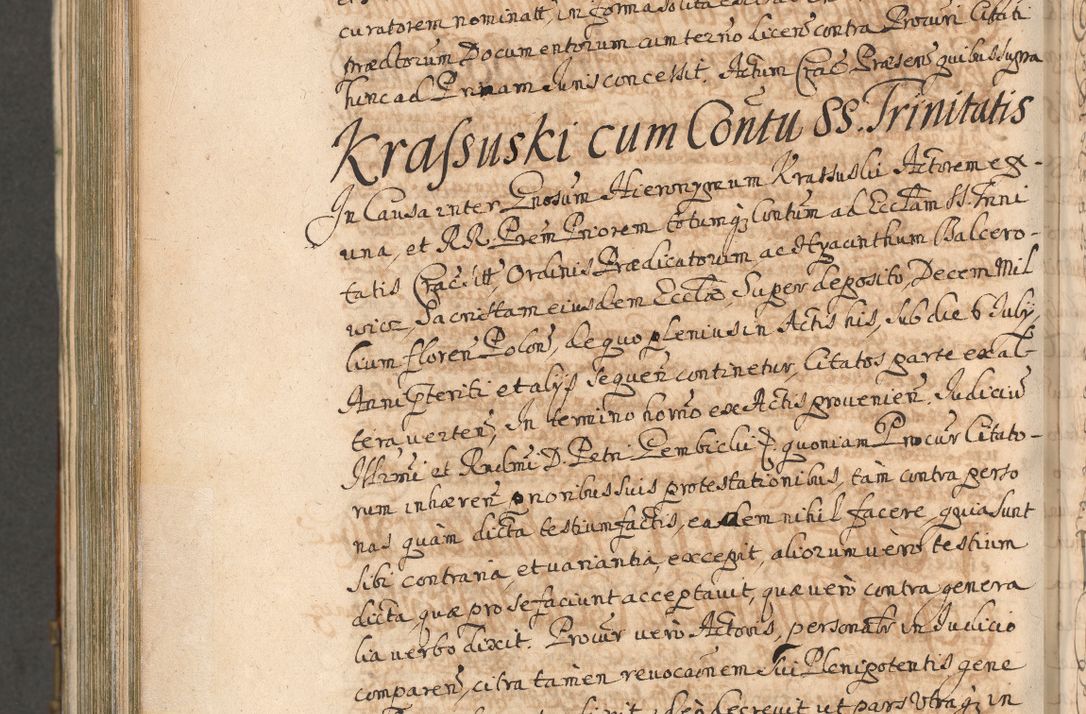 curatorem nominatt, in forma solita
prædtorum Documentorum cum terno dicens contra Procuri Citati
hinc ad Primam Juris concessit. Actum Crac Præsens quibus supra
Krassuski cum Contu SS. Trinitatis
In Causa inter Gnosum Hieronymum Krassuski Actorem ex
una, et RR. Prem Priorem totumq Contum ad Ecclam SS. Trini
tatis Crac sitt, Ordinis Prædicatorum ac Hyacinthum Balcero-
wicz, Sacristam eiusdem Ecclæ, Super deposito, Decem Mil
lium floren Polon, de quo plenius in Actis his, sub die 6 July,
Anni pteriti et alijs sequen continetur, Citatos parte ex al
tera verten, In termino horno ex Actis provenien. Judiciu
Illrmi et Rndmi D. Petri Gembicki P. quoniam Procur Citato-
rum inhæren prioribus suis protestationibus, tam contra perso
nas quàm dicta testium factis, eadem nihil facere, quia sunt
sibi contraria, et variantia, excepit, aliorum vero testium
dicta, quæ pro se faciunt acceptavit, quæ vero contra genera
lia verbo dixit. Procur vero Actoris, personatr in Judicio
comparens, citra tamen revocaonem sui Plenipotentis gene
decrevit ut pars utraq in